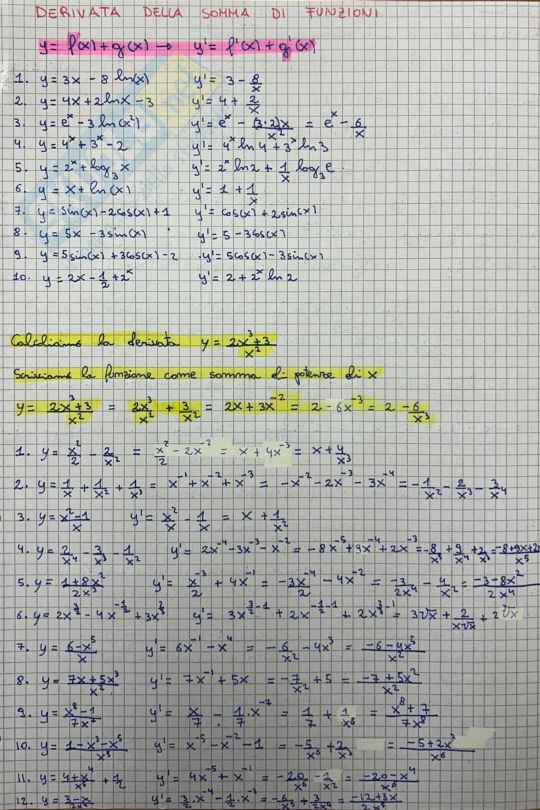 DERIVATA DELLA SOMMA DI FUNZIONI
y = f(x) + g(x) → y' = f'(x) + g'(x)
1. y = 3x - 8 ln(x) y' = 3 - 8/x
2. y = 4x + 2lnx - 3 y' = 4 + 2/x
3. y = e^x - 3 ln(x²) y' = e^x - (3·2)x/x² = e^x - 6/x
4. y = 4^x + 3^x - 2 y' = 4^x ln 4 + 3^x ln 3
5. y = 2^x + log₃ x y' = 2^x ln 2 + 1/x log₃ e
6. y = x + ln(x) y' = 1 + 1/x
7. y = sin(x) - 2cos(x) + 1 y' = cos(x) + 2sin(x)
8. y = 5x - 3sin(x) y' = 5 - 3cos(x)
9. y = 5sin(x) + 3cos(x) - 2 y' = 5cos(x) - 3sin(x)
10. y = 2x - 1/2 + 2^x y' = 2 + 2^x ln 2
Calcoliamo la derivata y = (2x³+3)/x²
Scriviamo la funzione come somma di potenze di x
y = (2x³+3)/x² = 2x³/x² + 3/x² = 2x + 3x⁻² = 2 - 6x⁻³ = 2 - 6/x³
1. y = x²/2 - 2/x² = x²/2 - 2x⁻² = x + 4x⁻³ = x + 4/x³
2. y = 1/x + 1/x² + 1/x³ = x⁻¹ + x⁻² + x⁻³ = -x⁻² - 2x⁻³ - 3x⁻⁴ = -1/x² - 2/x³ - 3/x⁴
3. y = (x²-1)/x y' = x²/x - 1/x = x + 1/x²
4. y = 2/x⁴ - 3/x³ - 1/x² y' = 2x⁻⁴ - 3x⁻³ - x⁻² = -8x⁻⁵ + 9x⁻⁴ + 2x⁻³ = -8/x⁵ + 9/x⁴ + 2/x³ =
5. y = (1+8x²)/2x³ y' = x⁻³/2 + 4x⁻¹ = -3x⁻⁴/2 - 4x⁻² = -3/2x⁴ - 4/x² = (-3-8x²)/2x⁴
6. y =
7. y = (6-x⁵)/x y' = 6x⁻¹ - x⁴ = -6/x² - 4x³ = (-6-4x⁵)/x²
8. y = (7x+5x³)/x² y' = 7x⁻¹ + 5x = -7/x² + 5 = (-7+5x²)/x²
9. y = (x⁸-1)/7x⁷ y' = x/7 - 1/7·x⁻⁷ = 1/7 + 1/x⁸ = (x⁸+7)/7x⁸
10. y = (1-x³-x⁵)/x⁵ y' = x⁻⁵ - x⁻² - 1 = -5/x⁶ + 2/x³ = (-5+2x³)/x⁶
11. y =
12. y =